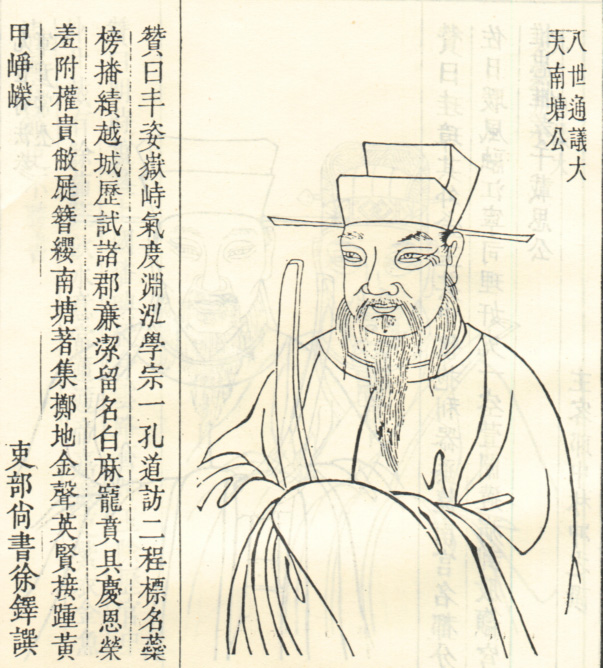 八世通議大
夫南塘公
贊曰丰姿嶽峙氣度淵泓學宗一孔道訪二程標名蘂
榜播績越城歷試諸郡亷潔留名白麻寵賁具慶恩榮
羞附權貴敝屣簪纓南塘著集擲地金聲英賢接踵黄
甲崢嶸
吏部尙書徐鐸譔